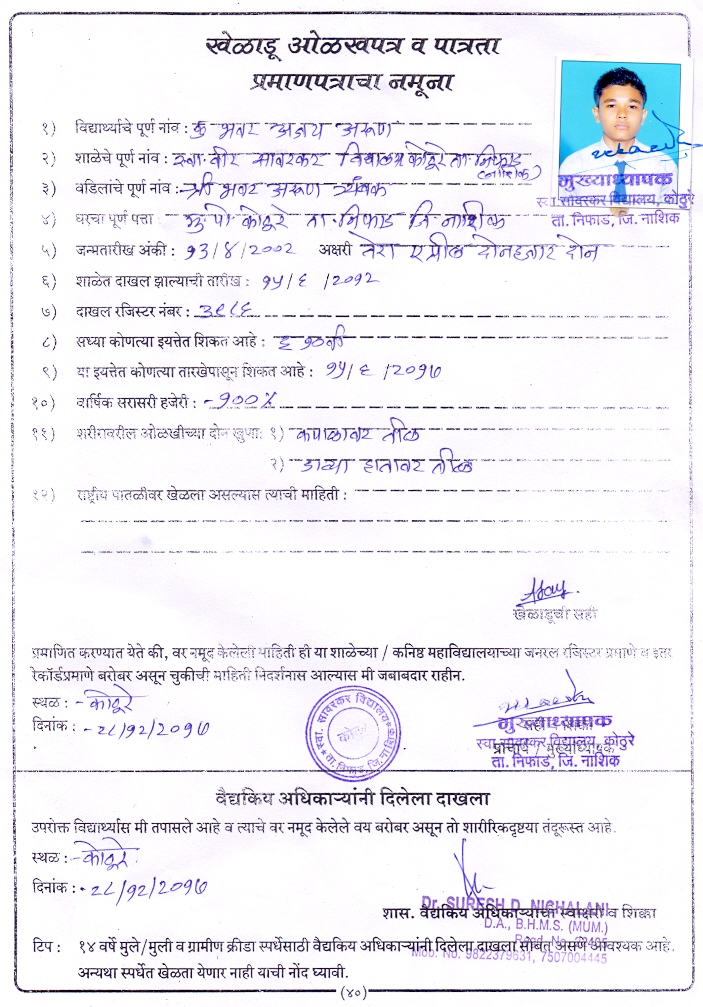 खेळाडू ओळखपत्र व पात्रता
प्रमाणपत्राचा नमूना
१) विद्यार्थ्याचे पूर्ण नांव : कु भवर अजय अरूण
२) शाळेचे पूर्ण नांव : स्वा. वीर सावरकर विद्यालय कोठूरे ता. निफाड
(नाशिक)
३) वडिलांचे पूर्ण नांव : श्री भवर अरूण त्र्यंबक
४) घरचा पूर्ण पत्ता मु. पो कोठूरे ता. निफाड जि नाशिक
५) जन्मतारीख अंकी : १३/४/२००२ अक्षरी तेरा एप्रील दोनहजार दोन
६) शाळेत दाखल झाल्याची तारीख : १५/६/२०१२
७) दाखल रजिस्टर नंबर : ३९८६
८) सध्या कोणत्या इयत्तेत शिकत आहे : इ १०वी
९) या इयत्तेत कोणत्या तारखेपासून शिकत आहे : १५/६/२०१७
१०) वार्षिक सरासरी हजेरी : - १००%
११) शरीरावरील ओळखीच्या दोन खुणा: १) कपाळावर तीळ
२) डाव्या हातावर तीळ
१२) राष्ट्रीय पातळीवर खेळला असल्यास त्याची माहिती :
मुख्याध्यापक
स्वा. सावरकर विद्यालय, कोठुरे
ता. निफाड, जि. नाशिक
Ajay
खेळाडूची सही
प्रमाणित करण्यात येते की, वर नमूद केलेली माहिती ही या शाळेच्या / कनिष्ठ महाविद्यालयाच्या जनरल रजिस्टर प्रमाणे व इतर
रेकॉर्डप्रमाणे बरोबर असून चुकीची माहिती निदर्शनास आल्यास मी जबाबदार राहीन.
स्थळ : - कोठूरे
दिनांक : - २८/१२/२०१७
स्वा. सावरकर विद्यालय
ता. निफाड, जि. नाशिक
मुख्याध्यापक
स्वा. सावरकर विद्यालय, कोठुरे
प्राचार्य / मुख्याध्यापक
ता. निफाड, जि. नाशिक
वैद्यकिय अधिकाऱ्यांनी दिलेला दाखला
उपरोक्त विद्यार्थ्यास मी तपासले आहे व त्याचे वर नमूद केलेले वय बरोबर असून तो शारीरिकदृष्टया तंदूरूस्त आहे.
स्थळ : - कोठूरे
दिनांक : - २८/१२/२०१७
Dr. SURESH D. NICHALANI
शास. वैद्यकिय अधिकाऱ्याचा स्वाक्षरी व शिक्का
D.A., B.H.M.S. (MUM.)
Mob. No. 9822379631, 7507004445
टिप : १४ वर्षे मुले/मुली व ग्रामीण क्रीडा स्पर्धेसाठी वैद्यकिय अधिकाऱ्यांनी दिलेला दाखला सोबत असणे आवश्यक आहे.
अन्यथा स्पर्धेत खेळता येणार नाही याची नोंद घ्यावी.
(४०)